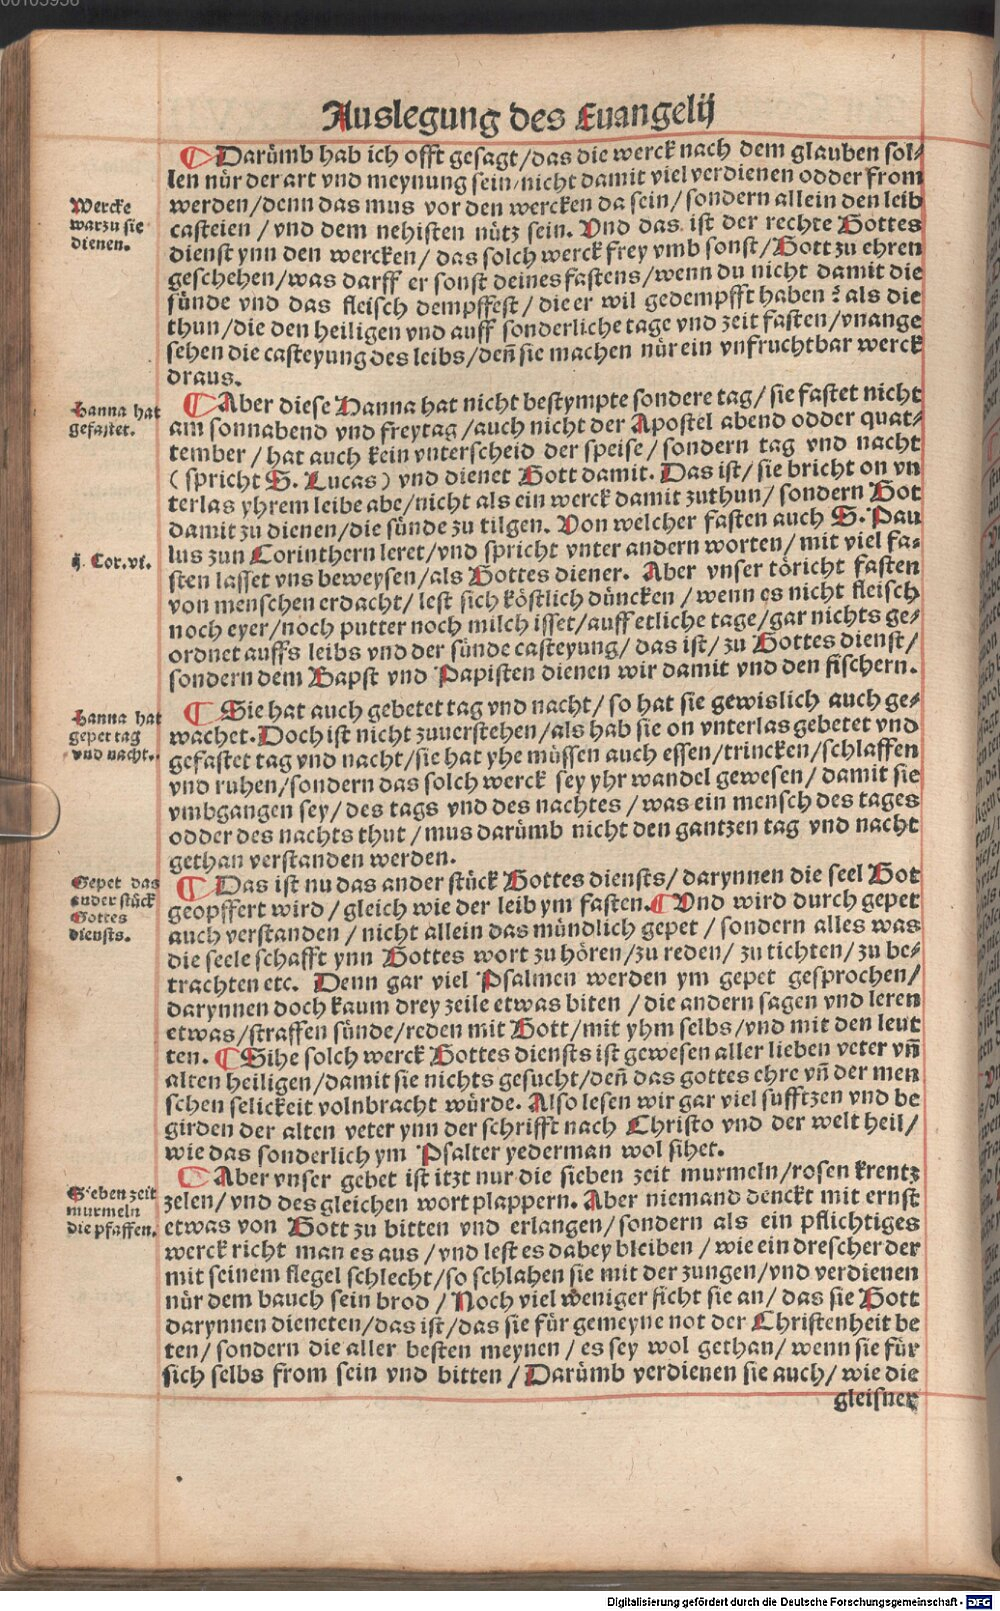 Auslegung des Euangelij
Darümb hab ich offt gesagt/das die werck nach dem glauben sol⸗
len nür der art vnd meynung sein/nicht damit viel verdienen odder from
Wercke
warzu sie
dienen.
werden/denn das mus vor den wercken da sein/sondern allein den leib
casteien/vnd dem nehisten nütz sein. Vnd das ist der rechte Gottes
dienst ynn den wercken/das solch werck frey vmb sonst/Gott zu ehren
geschehen/was darff er sonst deines fastens/wenn du nicht damit die
sünde vnd das fleisch dempffest/die er wil gedempfft haben? als die
thun/die den heiligen vnd auff sonderliche tage vnd zeit fasten/vnange
sehen die casteyung des leibs/deñ sie machen nür ein vnfruchtbar werck
draus.
Hanna hat
gefastet.
Aber diese Hanna hat nicht bestympte sondere tag/sie fastet nicht
am sonnabend vnd freytag/auch nicht der Apostel abend odder quat⸗
tember/hat auch kein vnterscheid der speise/sondern tag vnd nacht
(spricht S. Lucas) vnd dienet Gott damit. Das ist/sie bricht on vn
terlas yhrem leibe abe/nicht als ein werck damit zuthun/sondern Got
damit zu dienen/die sünde zu tilgen. Von welcher fasten auch S. Pau
ij. Cor.vi.
lus zun Corinthern leret/vnd spricht vnter andern worten/mit viel fa⸗
sten lasset vns beweysen/als Gottes diener. Aber vnser töricht fasten
von menschen erdacht/lest sich köstlich düncken/wenn es nicht fleisch
noch eyer/noch putter noch milch isset/auff etliche tage/gar nichts ge⸗
ordnet auffs leibs vnd der sünde casteyung/das ist/zu Gottes dienst/
sondern dem Bapst vnd Papisten dienen wir damit vnd den fischern.
Hanna hat
gepet tag
vnd nacht.
Sie hat auch gebetet tag vnd nacht/so hat sie gewislich auch ge⸗
wachet. Doch ist nicht zuuerstehen/als hab sie on vnterlas gebetet vnd
gefastet tag vnd nacht/sie hat yhe müssen auch essen/trincken/schlaffen
vnd ruhen/sondern das solch werck sey yhr wandel gewesen/damit sie
vmbgangen sey/des tags vnd des nachtes/was ein mensch des tages
odder des nachts thut/mus darümb nicht den gantzen tag vnd nacht
gethan verstanden werden.
Gepet das
ander stück
Gottes
diensts.
Das ist nu das ander stück Gottes diensts/darynnen die seel Got
geopffert wird/gleich wie der leib ym fasten. Vnd wird durch gepet
auch verstanden/nicht allein das mündlich gepet/sondern alles was
die seele schafft ynn Gottes wort zu hören/zu reden/zu tichten/zu be⸗
trachten etc. Denn gar viel Psalmen werden ym gepet gesprochen/
darynnen doch kaum drey zeile etwas biten/die andern sagen vnd leren
etwas/straffen sünde/reden mit Gott/mit yhm selbs/vnd mit den leut
ten. Sihe solch werck Gottes diensts ist gewesen aller lieben veter vñ
alten heiligen/damit sie nichts gesucht/deñ das gottes ehre vñ der men
schen selickeit volnbracht würde. Also lesen wir gar viel sufftzen vnd be
girden der alten veter ynn der schrifft nach Christo vnd der welt heil/
wie das sonderlich ym Psalter yederman wol sihet.
Sieben zeit
murmeln
die pfaffen.
Aber vnser gebet ist itzt nur die sieben zeit murmeln/rosen krentz
zelen/vnd des gleichen wort plappern. Aber niemand denckt mit ernst
etwas von Gott zu bitten vnd erlangen/sondern als ein pflichtiges
werck richt man es aus/vnd lest es dabey bleiben/wie ein drescher der
mit seinem flegel schlecht/so schlahen sie mit der zungen/vnd verdienen
nür dem bauch sein brod/Noch viel weniger ficht sie an/das sie Gott
darynnen dieneten/das ist/das sie für gemeyne not der Christenheit be
ten/sondern die aller besten meynen/es sey wol gethan/wenn sie für
sich selbs from sein vnd bitten/Darümb verdienen sie auch/wie die
gleisner
Digitalisierung gefördert durch die Deutsche Forschungsgemeinschaft - DFG